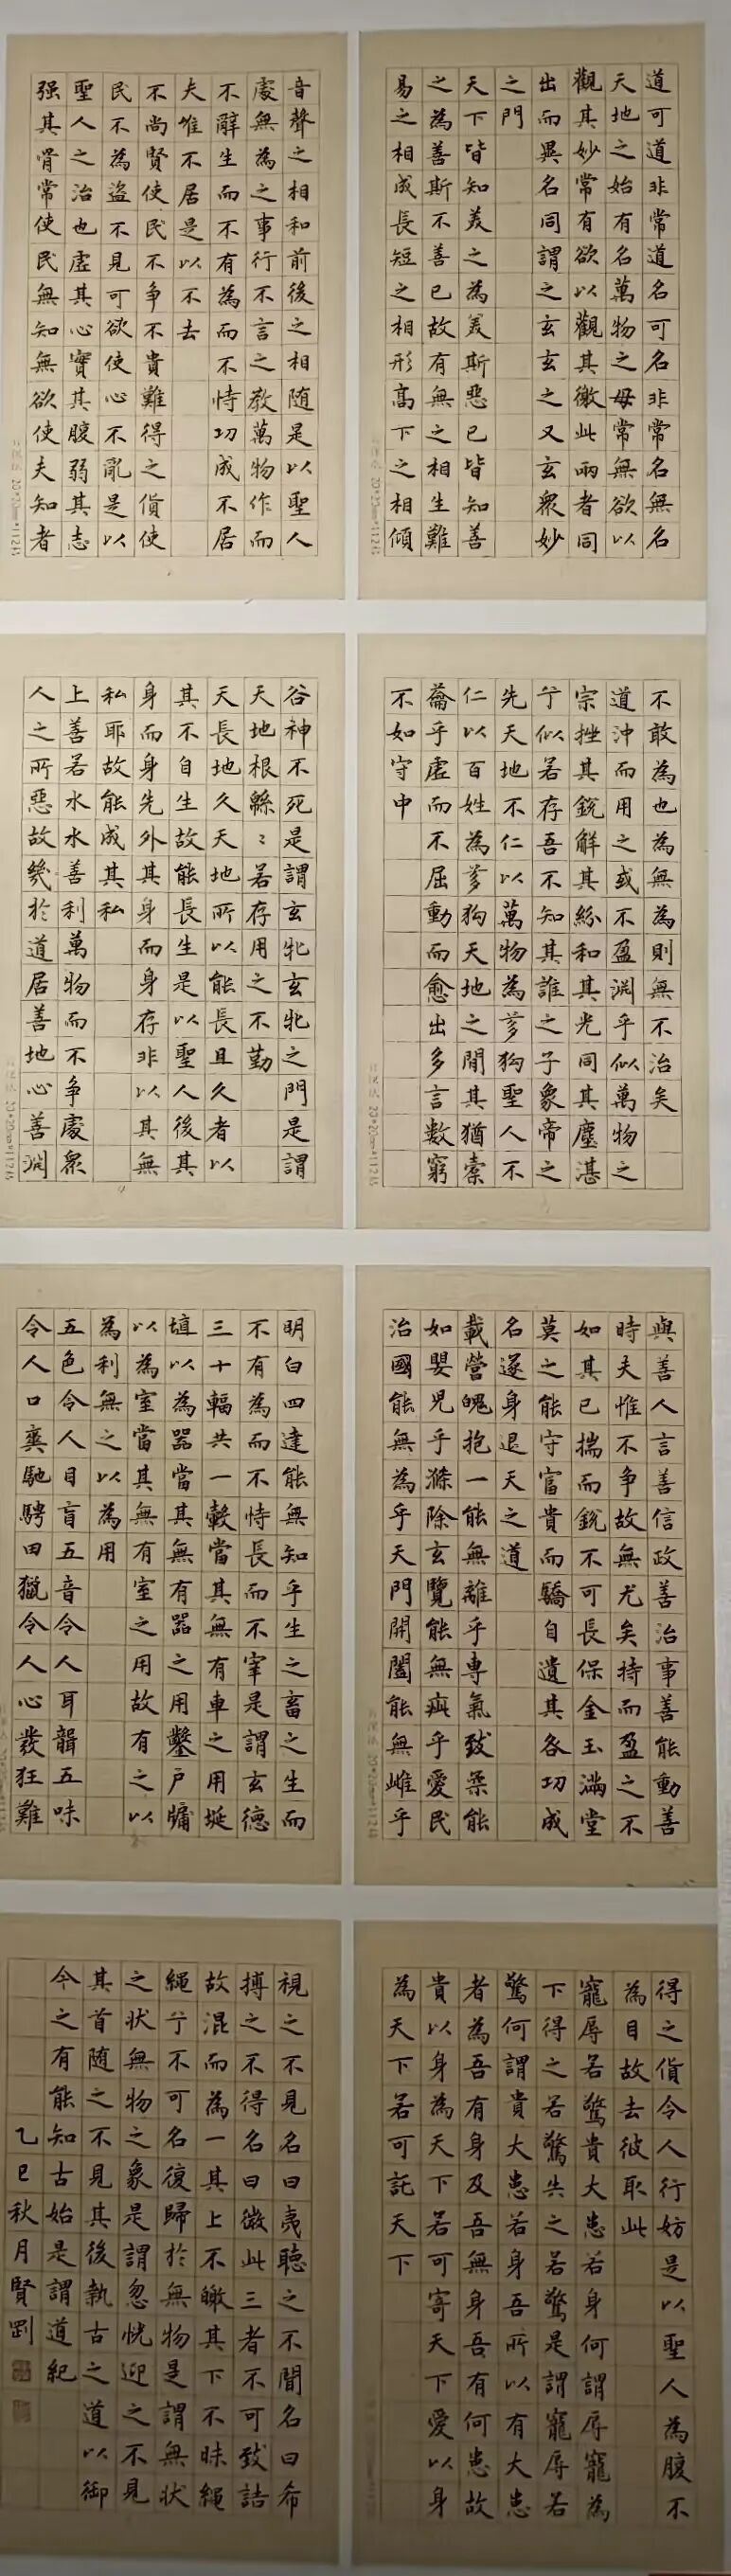 道可道非常道名可名非常名無名
天地之始有名萬物之母常無欲以
觀其妙常有欲以觀其徼此兩者同
出而異名同謂之玄玄之又玄衆妙
之門
天下皆知美之為美斯惡已皆知善
之為善斯不善已故有無之相生難
易之相成長短之相形高下之相傾
音聲之相和前後之相随是以聖人
處無為之事行不言之教萬物作而
不辭生而不有為而不恃功成不居
夫惟不居是以不去
不尚賢使民不争不貴難得之貨使
民不為盗不見可欲使心不亂是以
聖人之治也虛其心實其腹弱其志
强其骨常使民無知無欲使夫知者
不敢為也為無為則無不治矣
道沖而用之或不盈淵乎似萬物之
宗挫其銳解其紛和其光同其塵湛
兮似若存吾不知其誰之子象帝之
先天地不仁以萬物為芻狗聖人不
仁以百姓為芻狗天地之間其猶橐
籥乎虛而不屈動而愈出多言數窮
不如守中
谷神不死是謂玄牝玄牝之門是謂
天地根緜〻若存用之不勤
天長地久天地所以能長且久者以
其不自生故能長生是以聖人後其
身而身先外其身而身存非以其無
私耶故能成其私
上善若水水善利萬物而不争處衆
人之所惡故幾於道居善地心善淵
與善人言善信政善治事善能動善
時夫惟不争故無尤矣持而盈之不
如其已揣而銳不可長保金玉滿堂
莫之能守富貴而驕自遺其咎功成
名遂身退天之道
載營魄抱一能無離乎専氣致柔能
如嬰児乎滌除玄覽能無疵乎愛民
治國能無為乎天門開闔能無雌乎
明白四達能無知乎生之畜之生而
不有為而不恃長而不宰是謂玄德
三十輻共一轂當其無有車之用埏
埴以為器當其無有器之用鑿户牖
以為室當其無有室之用故有之以
為利無之以為用
五色令人目盲五音令人耳聾五味
令人口爽馳騁田獵令人心發狂難
得之貨令人行妨是以聖人為腹不
為目故去彼取此
寵辱若驚貴大患若身何謂辱寵為
下得之若驚失之若驚是謂寵辱若
驚何謂貴大患若身吾所以有大患
者為吾有身及吾無身吾有何患故
貴以身為天下若可寄天下愛以身
為天下若可託天下
視之不見名曰夷聽之不聞名曰希
搏之不得名曰微此三者不可致詰
故混而為一其上不皦其下不昧繩
繩兮不可名復歸於無物是謂無状
之状無物之象是謂忽恍迎之不見
其首随之不見其後執古之道以御
今之有能知古始是謂道紀
乙巳秋月賢劉